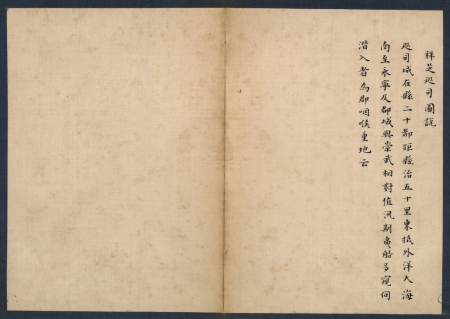 祥芝巡司圖説
巡司城在縣二十都距縣治五十里東抵外洋大海
南至永寧及郡城與崇武相對值汛期夷船多窺伺
潛入者為郡咽喉重地云